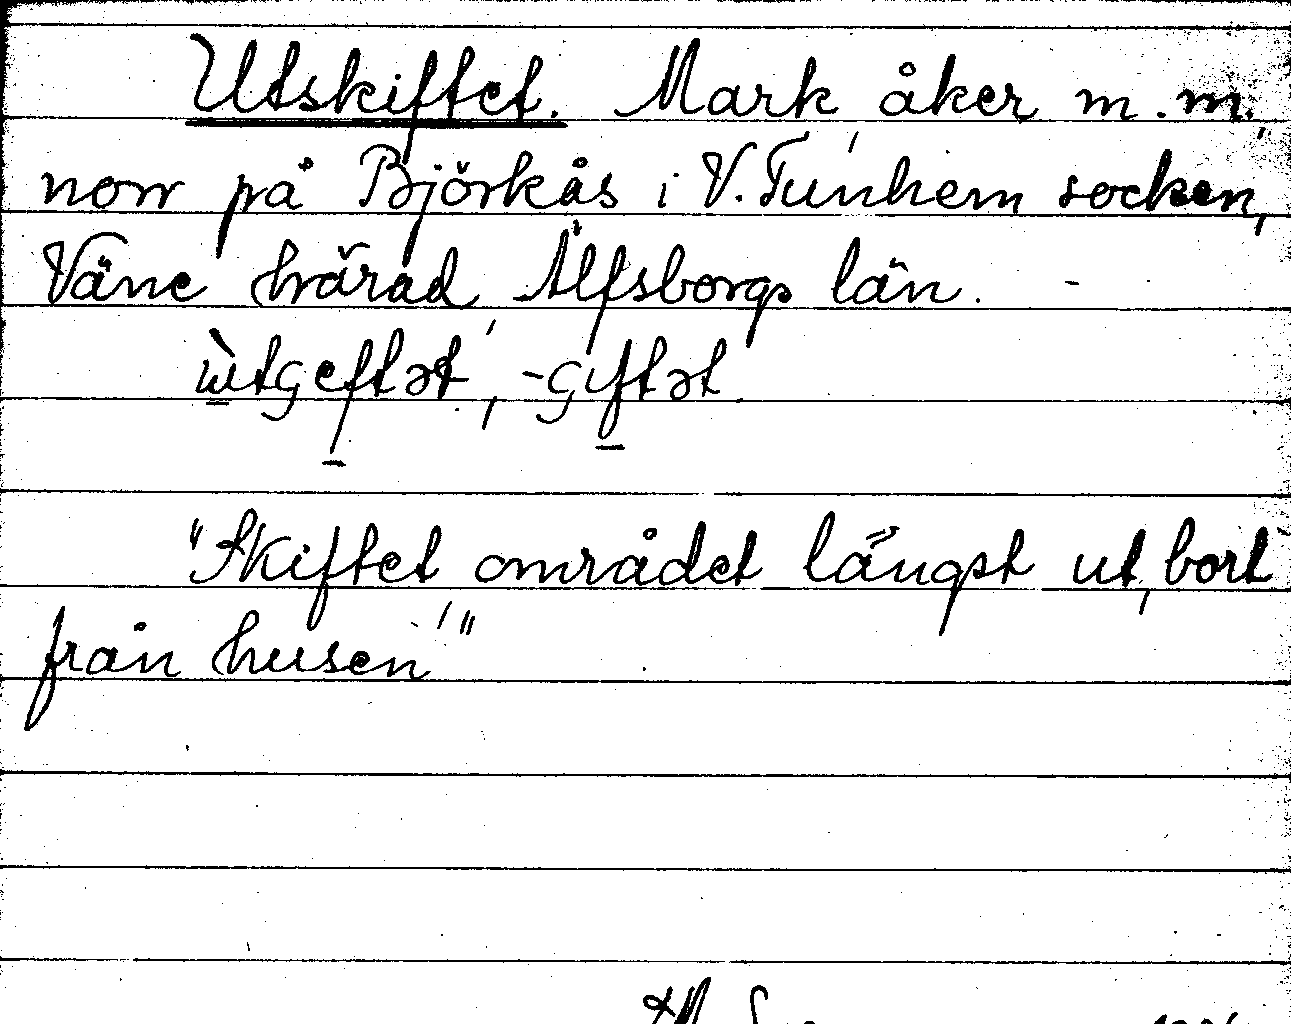 Utskiftet. Mark åker m.m.,
norr på Björkås i V. Tunhem socken,
Väne härad, Älfsborgs län.
ẁtgeftət, -giftət.
"Skiftet området längst ut, bort
från husen"